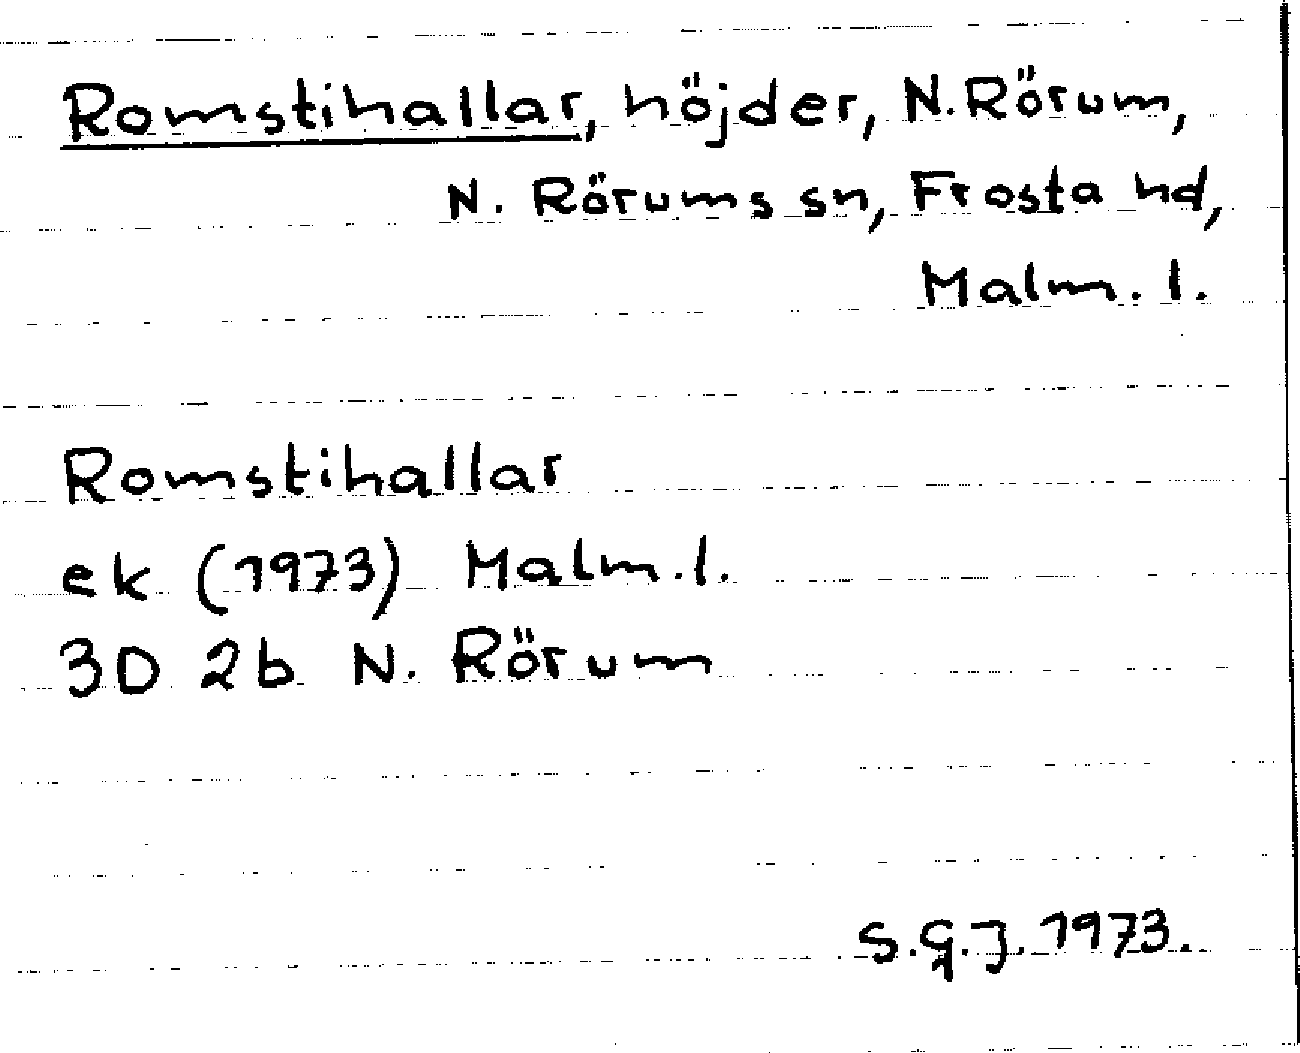 Romstihallar, höjder, N. Rörum,
N. Rörums sn, Frosta hd,
Malm. l.
Romstihallar
ek (1973) Malm. l.
3D 2b N. Rörum
S.G.J. 1973.